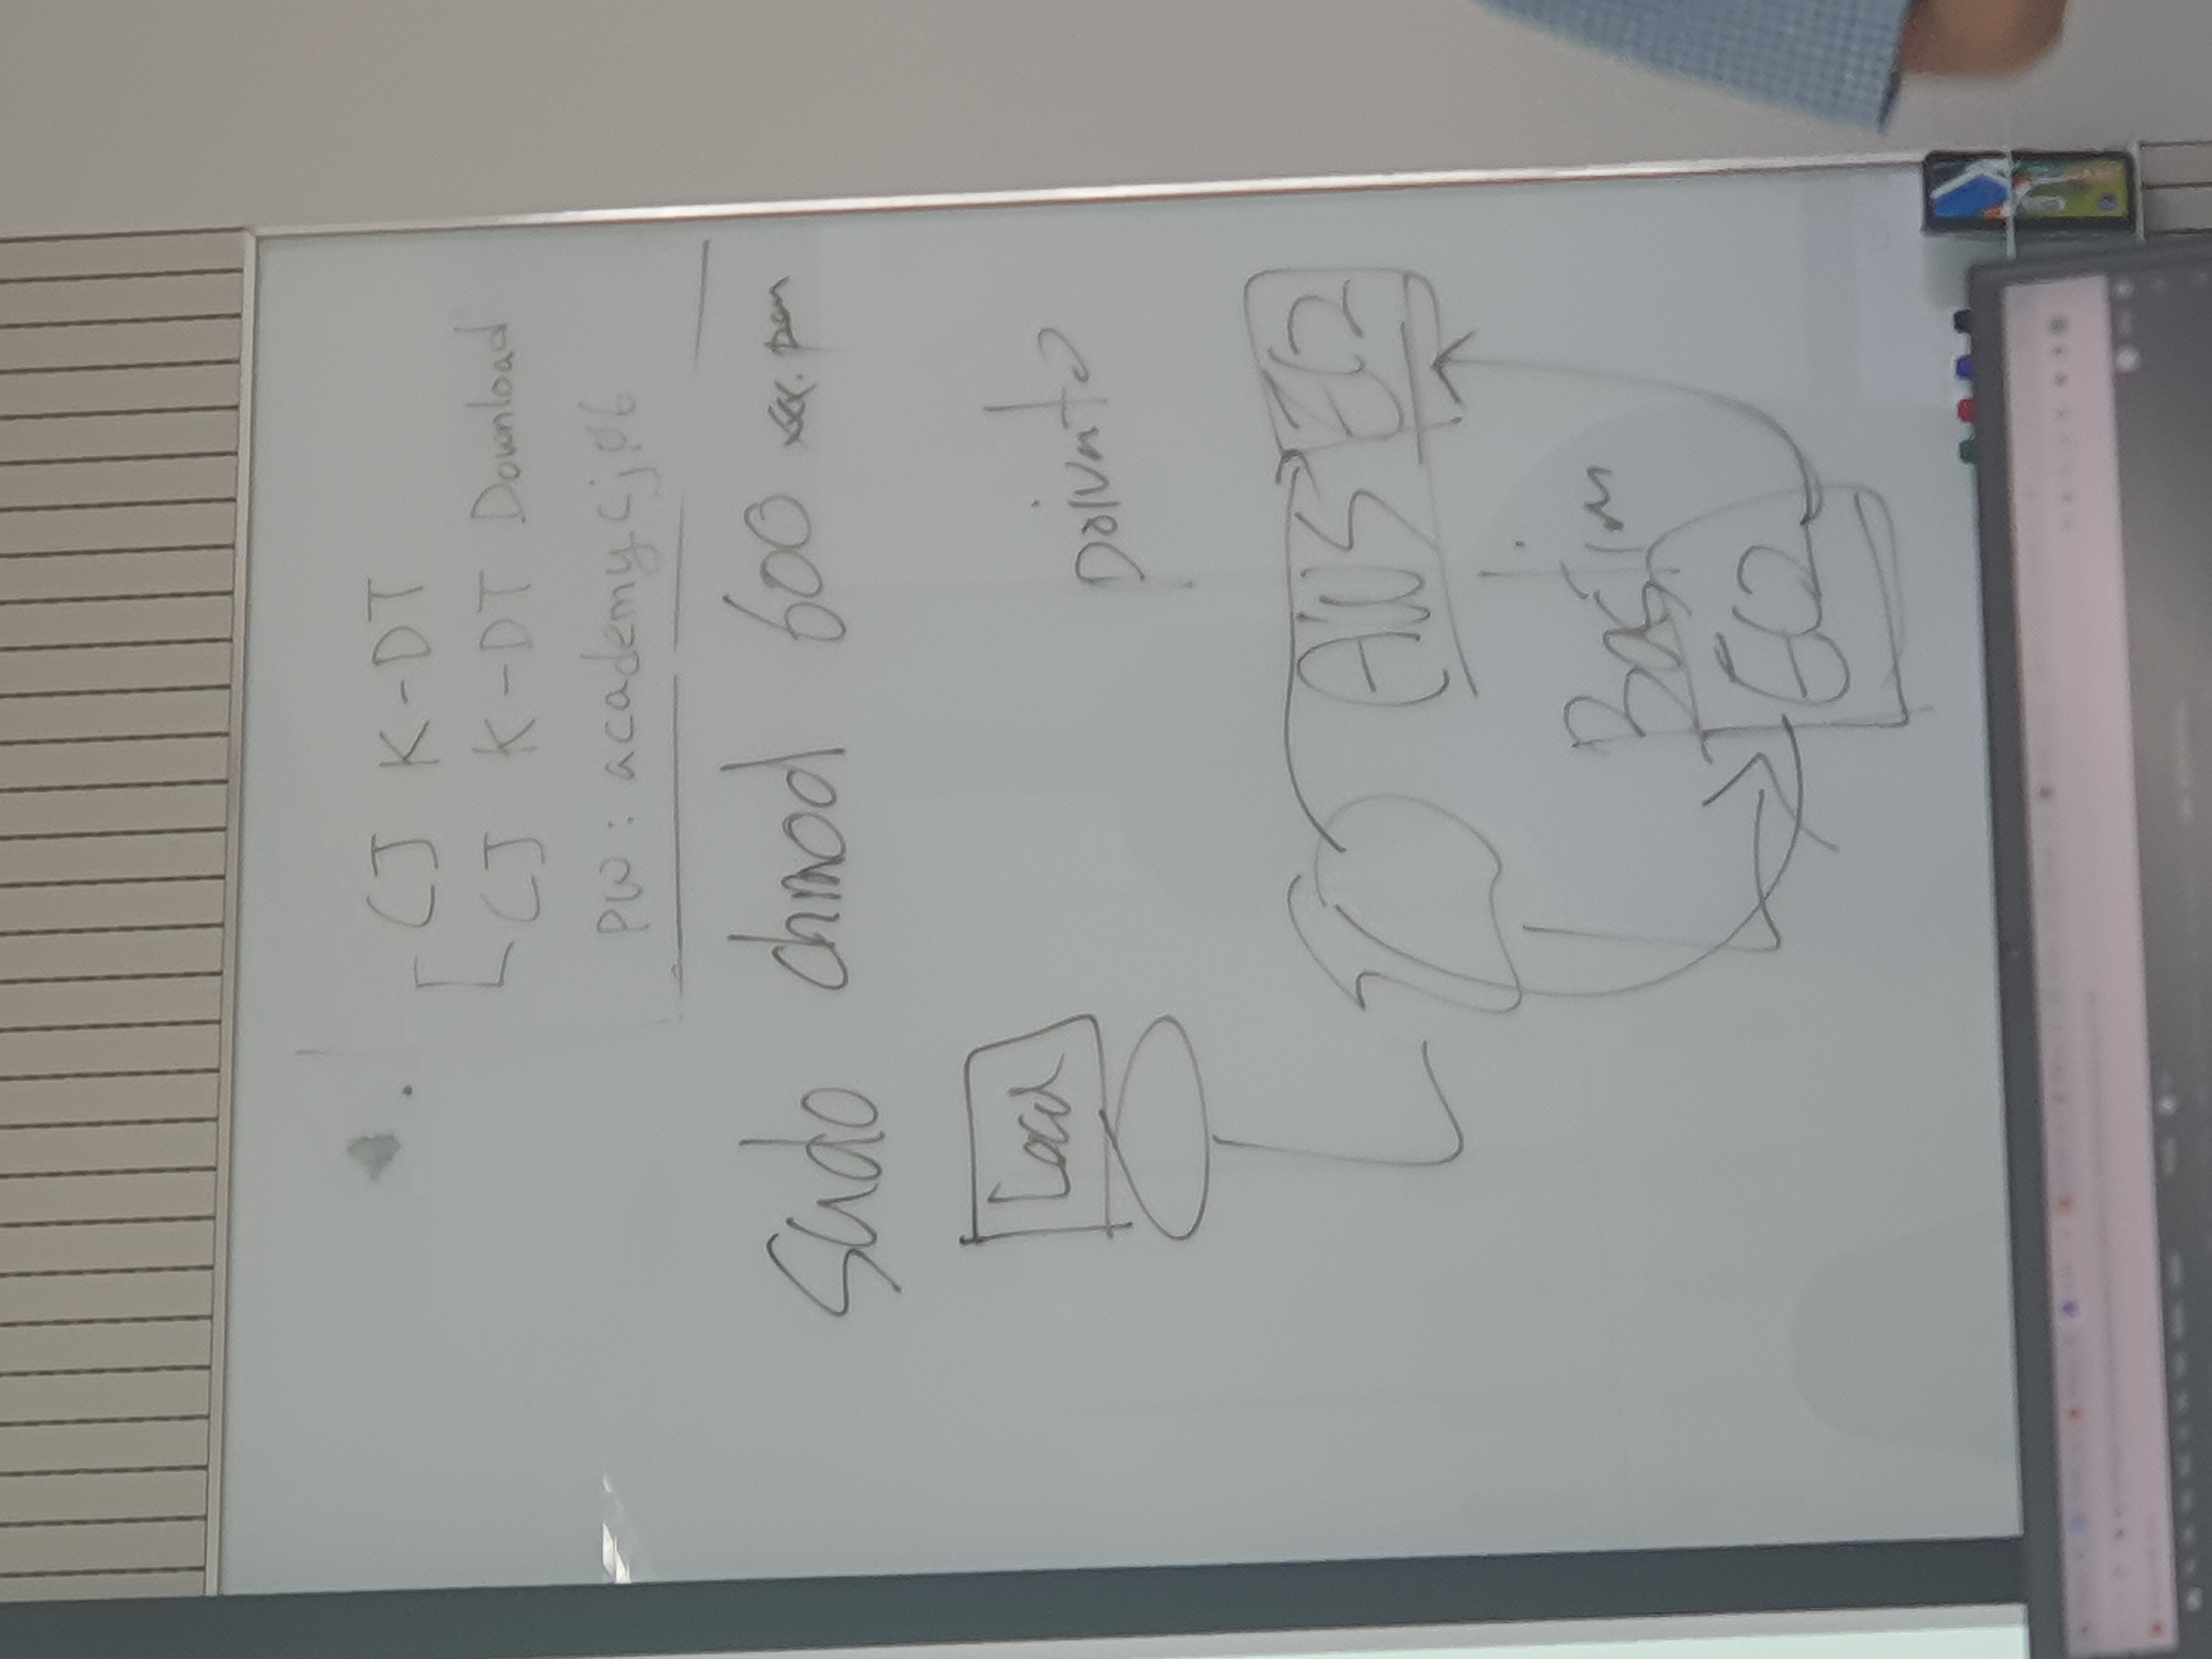 CJ K-DT
CJ K-DT Download
PW : academy.cj.06
sudo chmod 600 xxx.pem
Local
private
AWS EC2
Bastion
EC2